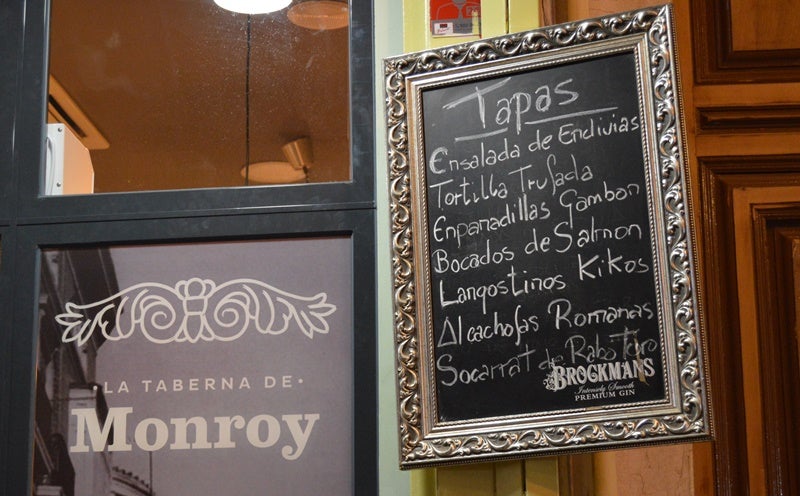 ·LA TABERNA DE·
Monroy
Tapas
Ensalada de Endivias
Tortilla Trufada
Enpanadillas Gambon
Bocados de Salmon
Langostinos Kikos
Alcachofas Romanas
Socarrat de Rabo Toro
BROCKMANS
Intensely Smooth
PREMIUM GIN